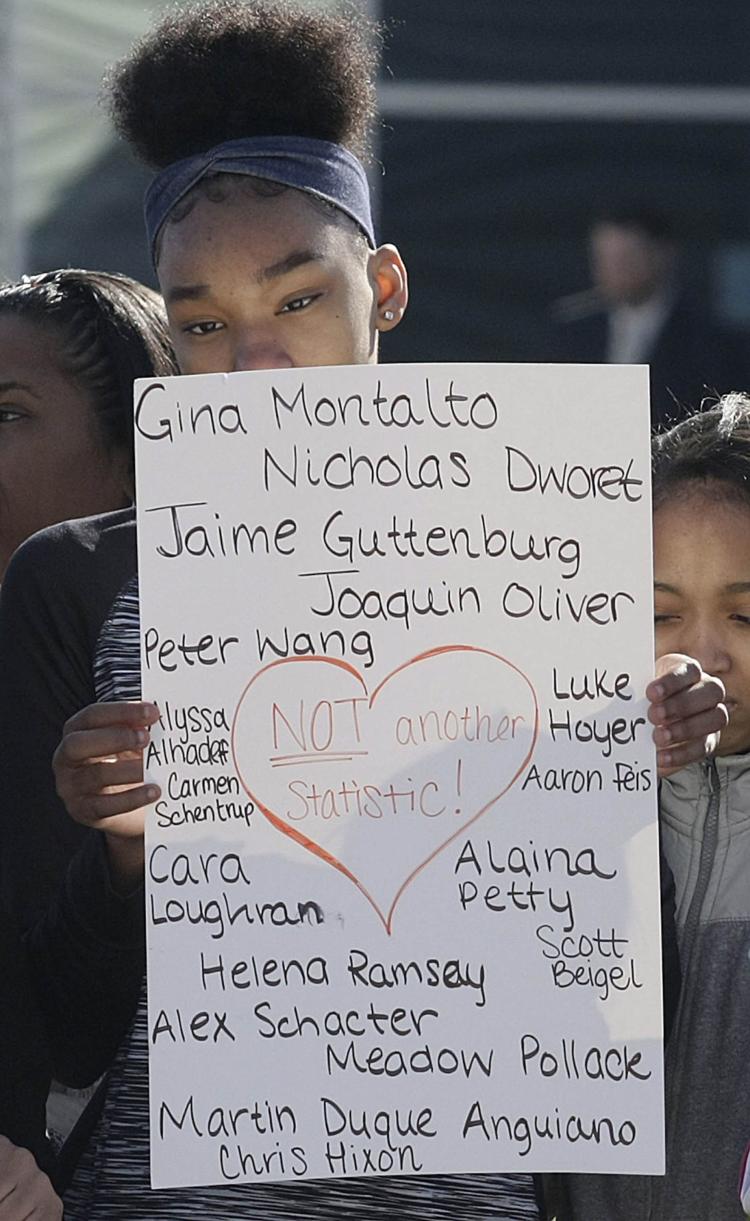 Gina Montalto
Nicholas Dworet
Jaime Guttenburg
Joaquin Oliver
Peter Wang
Alyssa
Alhadeff
Carmen
Schentrup
NOT another
Statistic!
Luke
Hoyer
Aaron Feis
Cara
Loughran
Alaina
Petty
Scott
Beigel
Helena Ramsay
Alex Schacter
Meadow Pollack
Martin Duque Anguiano
Chris Hixon